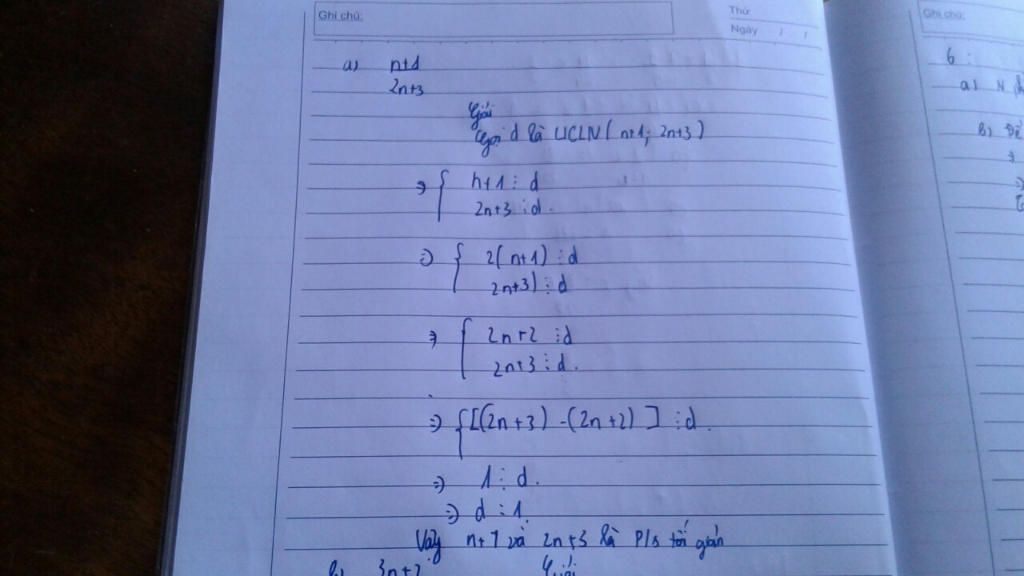 Ghi chú:
Thứ
Ngày / /
a) n+1
2n+3
Giải
Gọi d là ƯCLN( n+1; 2n+3 )
=> { n+1 ⋮ d
2n+3 ⋮ d.
=> { 2(n+1) ⋮ d
2n+3) ⋮ d
=> { 2n+2 ⋮ d
2n+3 ⋮ d.
=> { [(2n+3) -(2n+2) ] ⋮ d.
=> 1 ⋮ d.
=> d = 1.
Vậy n+1 và 2n+3 là P/s tối giản
b) 3n+2
Giải
Ghi chú:
6 :
a)
b) Để